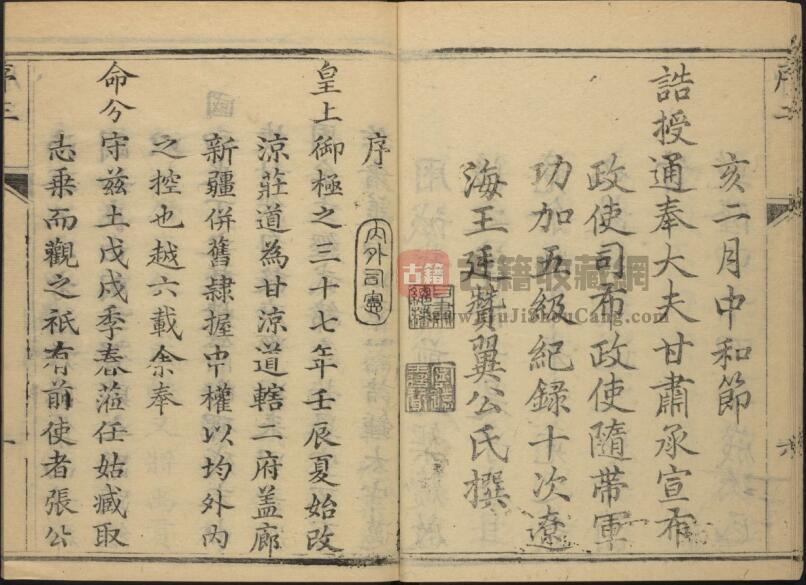 序二
亥二月中和節
誥授通奉大夫甘肅承宣布
政使司布政使隨帶軍
功加五級紀錄十次遼
海王廷贊翼公氏撰
六
序
內外司憲
皇上御極之三十七年壬辰夏始改
涼莊道為甘涼道轄二府蓋廊
新疆併舊隸握中權以均外內
之控也越六載余奉
命兮守茲土戊戌季春蒞任姑臧取
志乗而觀之祇有前使者張公
序三
一
古籍
古籍收藏網
www.GuJiShouCang.com